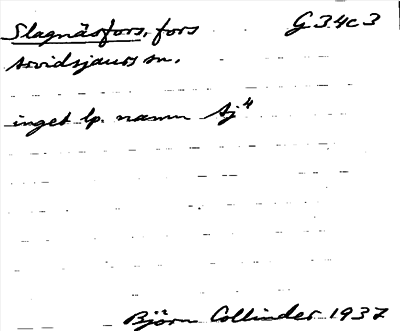 Slagnäsfors, fors G 34c3
Arvidsjaurs sn.
inget lp. namn Aj⁴
Björn Collinder 1937